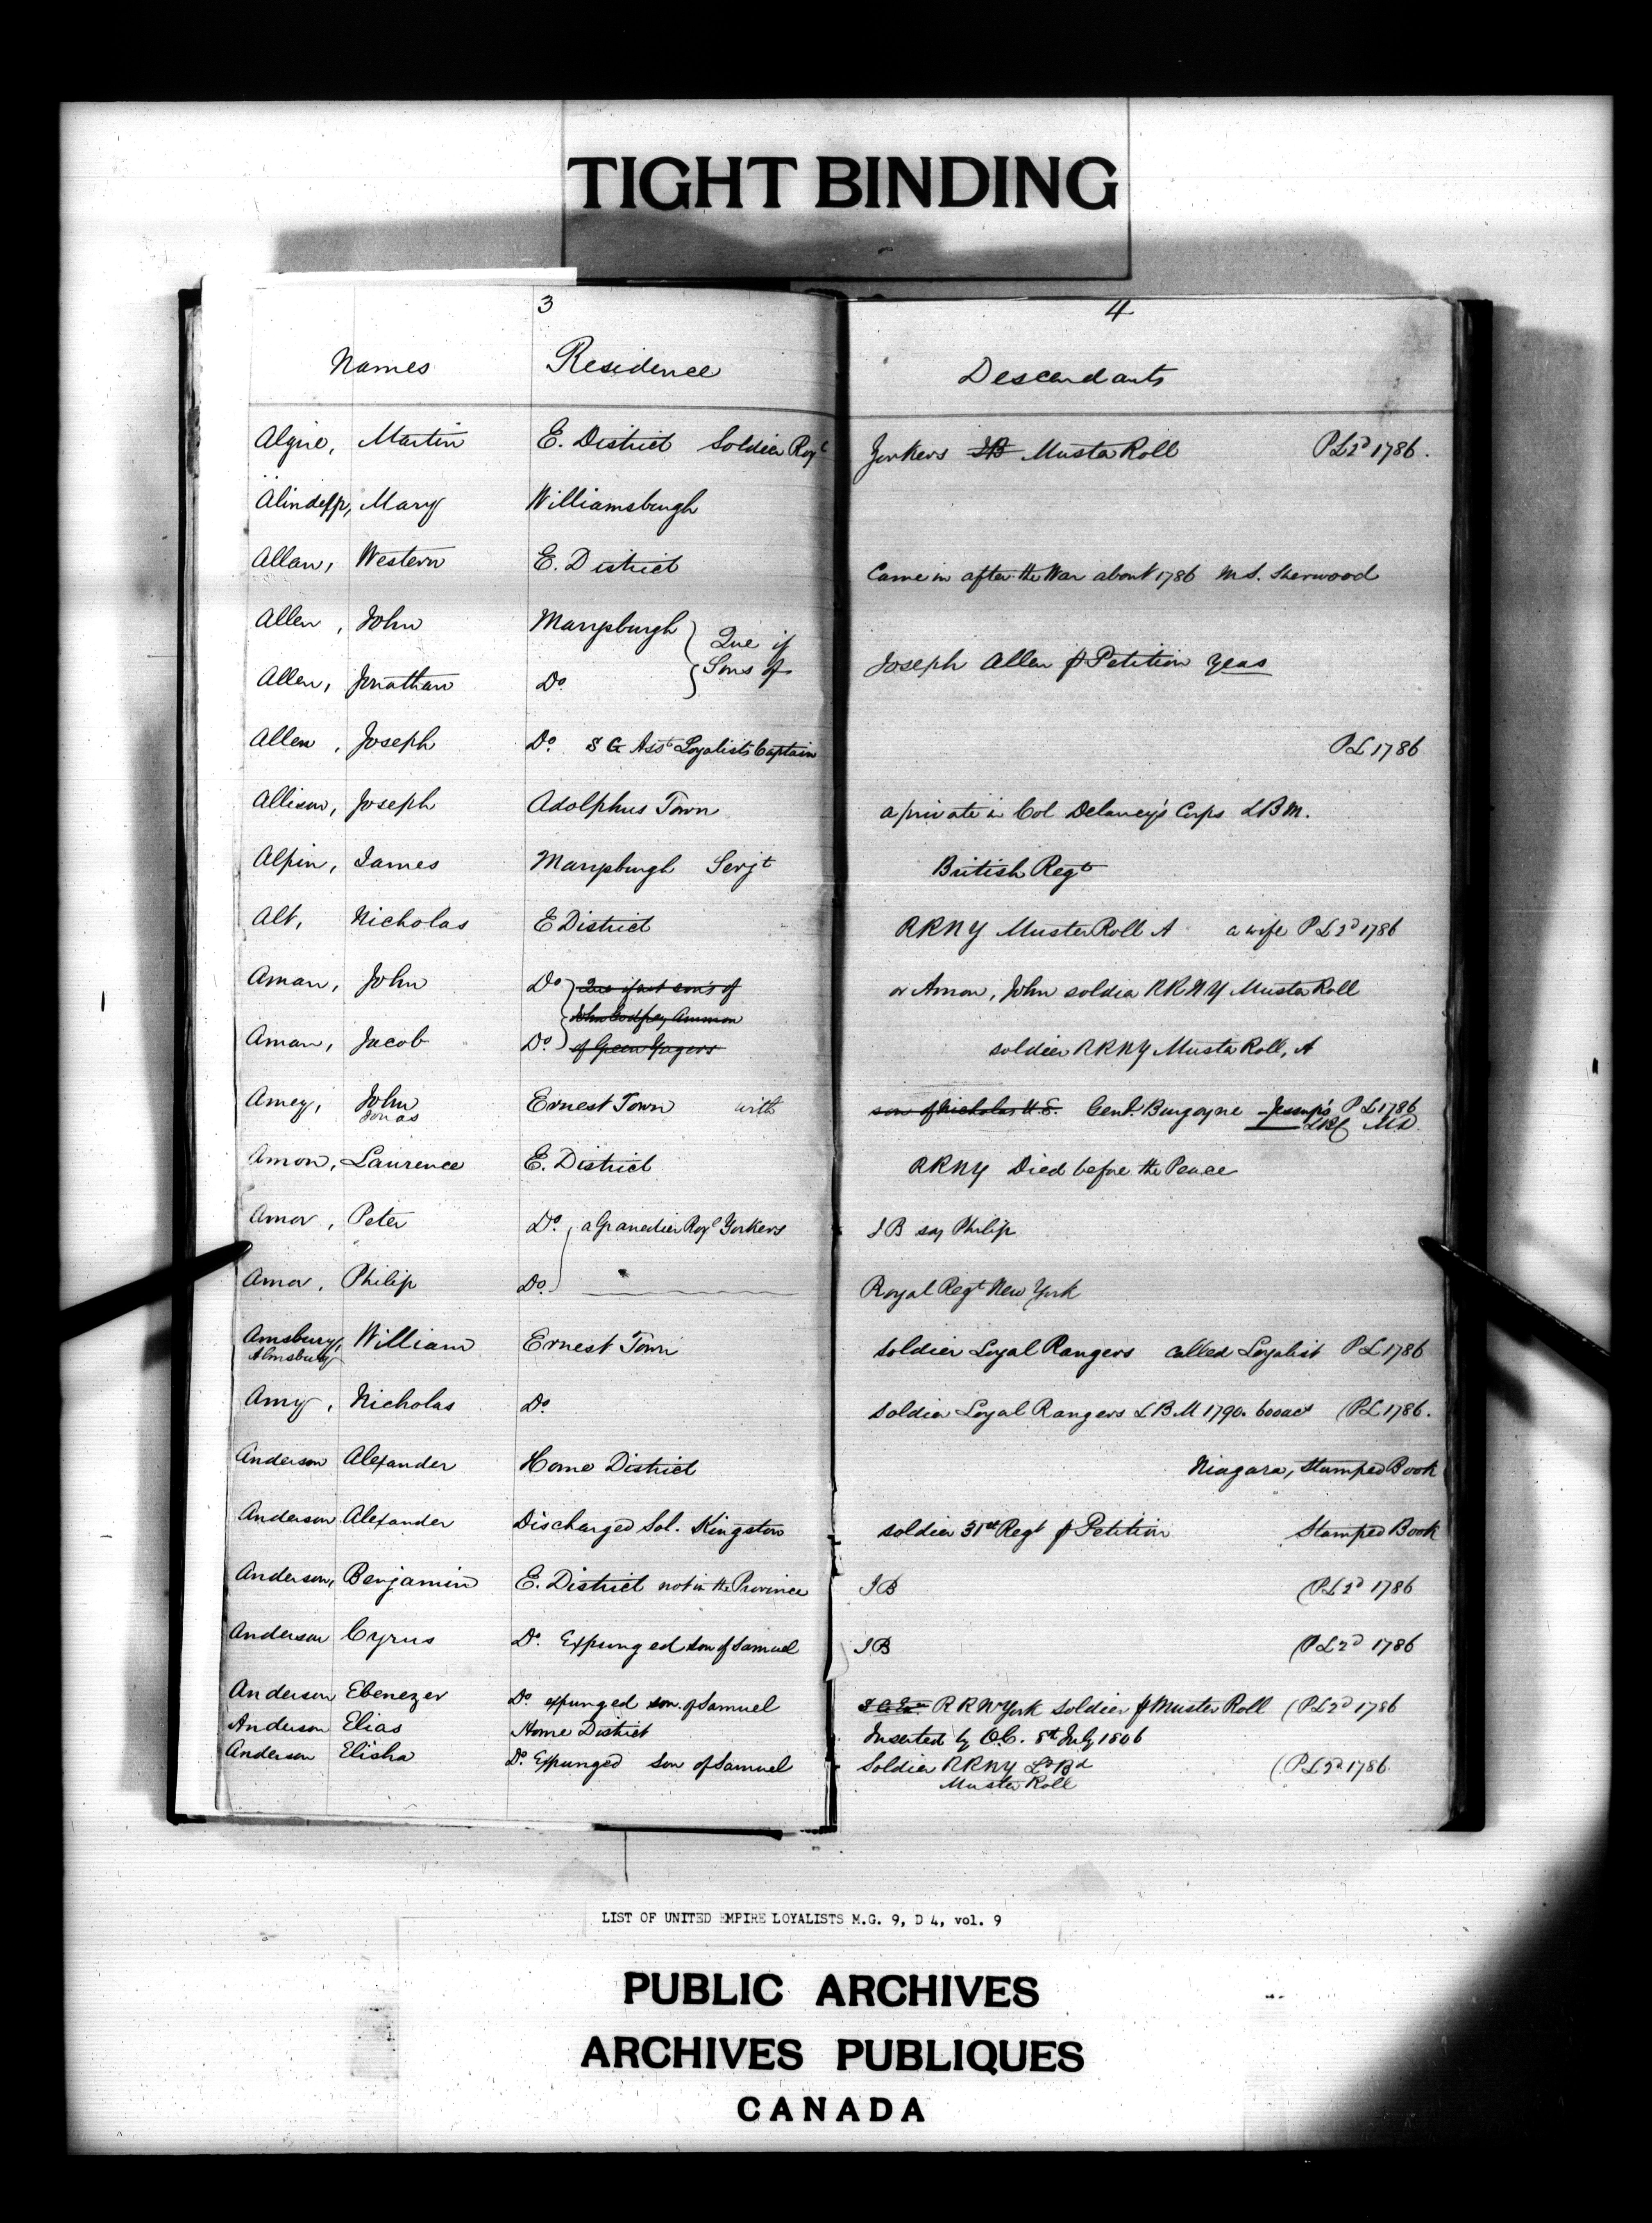 TIGHT BINDING
3
4
Names Residence Descendants
Algire, Martin E. District Soldier Royl Yorkers I B Muster Roll PL 2d 1786.
Mary Williamsburgh
Allan, Western E. District Came in after the War about 1786 M S. Sherwood
Allen, John Marysburgh Que if
Allen, Jonathan Do Sons of Joseph Allen p Petition Yeas
Allen, Joseph Do. S G Asst Loyalists Captain PL 1786
Allison, Joseph Adolphus Town a private in Col Delancey's Corps LBM.
Alpin, James Marysburgh Serjt British Regt
Alt, Nicholas E District RRNY Muster Roll A a wife PL 2d 1786
Aman, John Do Que if not sons of or Amon, John soldier RRNY Muster Roll
John Godfrey Ammon
Aman, Jacob Do. of Green Yagers soldier RRNY Muster Roll, A
Amey, John Ernest Town with son of Nicholas U.E. Genl. Burgoyne Jessup's PL 1786
Jonas MD.
Amon, Laurence E. District RRNY Died before the Peace
Amor, Peter Do. a Granedier Royl Yorkers I B say Philip
Amor, Philip Do. Royal Regt New York
Amsbury, William Ernest Town soldier Loyal Rangers called Loyalist PL 1786
Almsbury
Amy, Nicholas Do. Soldier Loyal Rangers LBM 1790. 600act (PL 1786.
Anderson Alexander Home District Niagara, Stamped Book
Anderson Alexander Discharged Sol. Kingston soldier 31st Regt p Petition Stamped Book
Anderson, Benjamin E. District not in the Province I B (PL 2d 1786
Anderson Cyrus Do. Expunged son of Samuel I B (PL 2d 1786
Anderson Ebenezer Do. expunged son of Samuel R R N York soldier p Muster Roll (PL 2d 1786
Anderson Elias Home District Inserted by O.C. 8th July 1806
Anderson Elisha Do. Expunged Son of Samuel Soldier RRNY (PL 2d 1786
Muster Roll
LIST OF UNITED EMPIRE LOYALISTS M.G. 9, D 4, vol. 9
PUBLIC ARCHIVES
ARCHIVES PUBLIQUES
CANADA